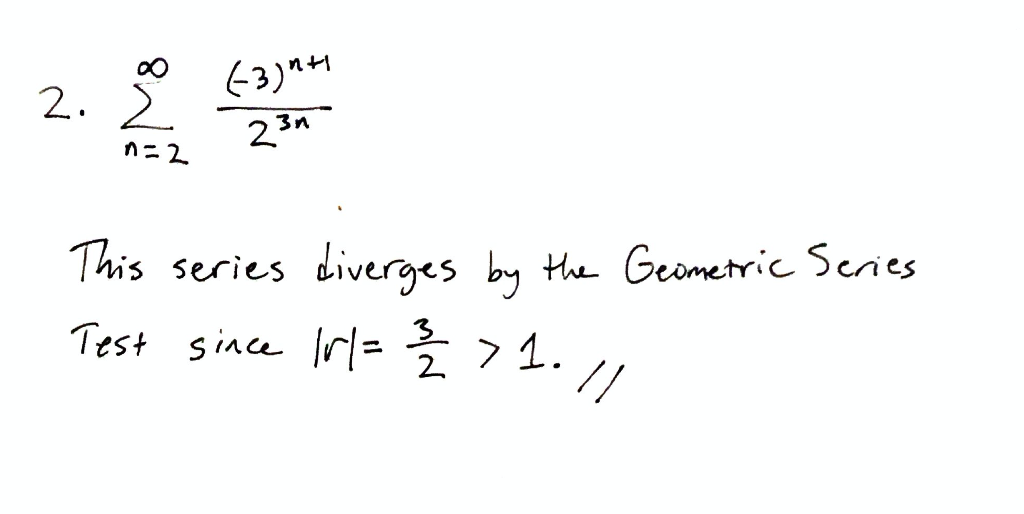 2. ∞ Σ n=2 (-3)^{n+1} / 2^{3n}
This series diverges by the Geometric Series
Test since |r| = 3/2 > 1. //